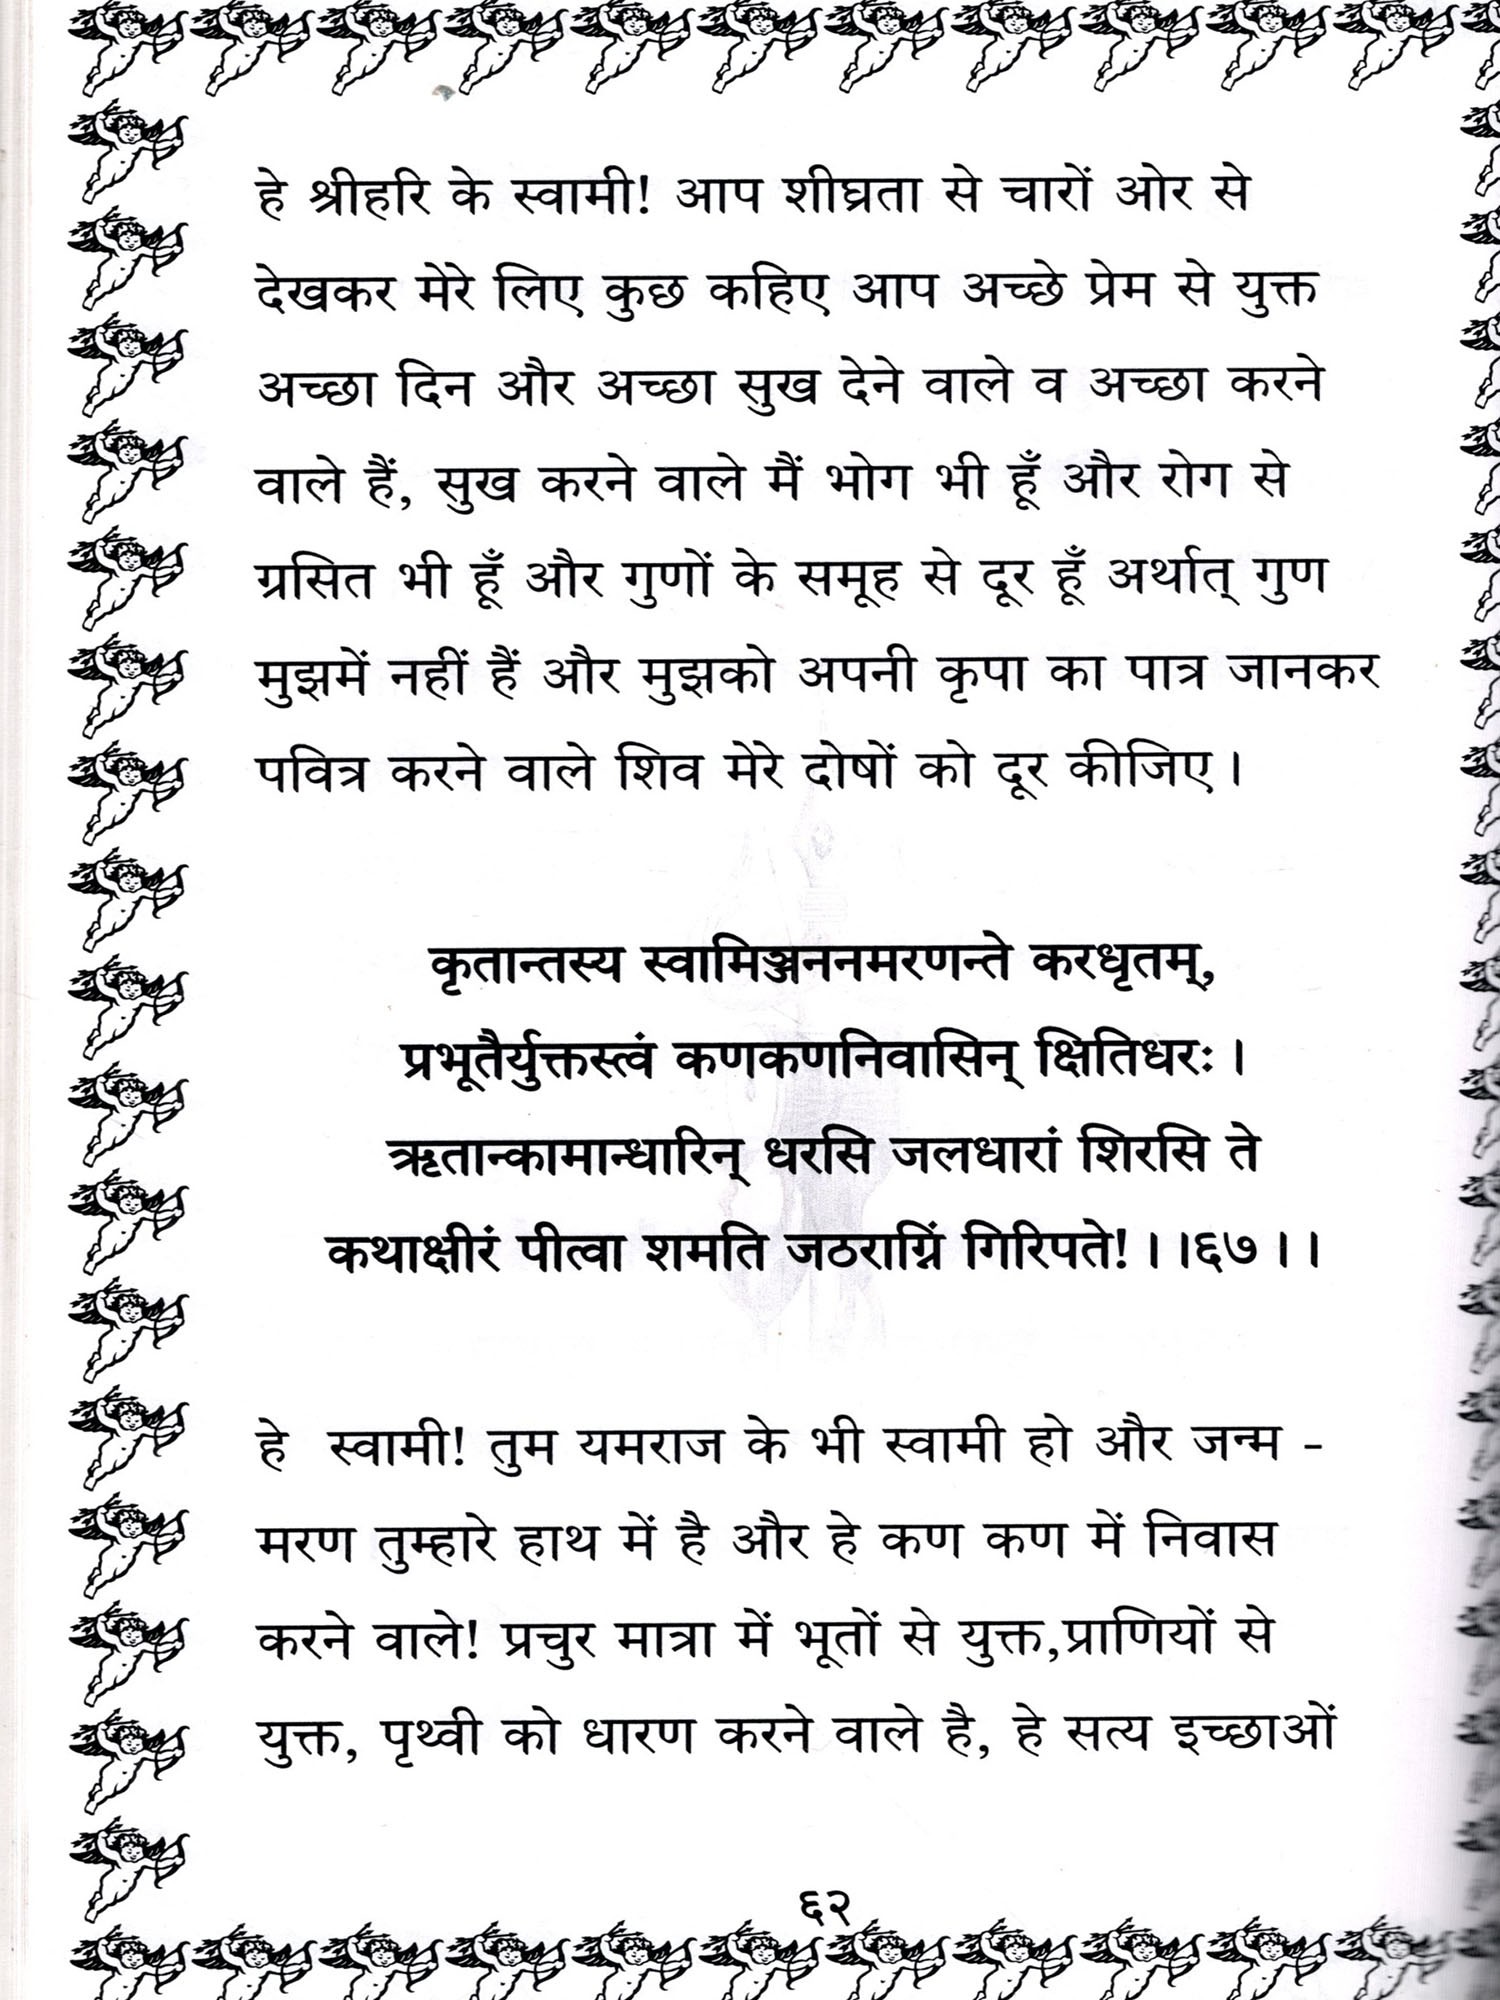 हे श्रीहरि के स्वामी! आप शीघ्रता से चारों ओर से
देखकर मेरे लिए कुछ कहिए आप अच्छे प्रेम से युक्त
अच्छा दिन और अच्छा सुख देने वाले व अच्छा करने
वाले हैं, सुख करने वाले मैं भोग भी हूँ और रोग से
ग्रसित भी हूँ और गुणों के समूह से दूर हूँ अर्थात् गुण
मुझमें नहीं हैं और मुझको अपनी कृपा का पात्र जानकर
पवित्र करने वाले शिव मेरे दोषों को दूर कीजिए।
कृतान्तस्य स्वामिञ्जननमरणन्ते करधृतम्,
प्रभूतैर्युक्तस्त्वं कणकणनिवासिन् क्षितिधरः।
ऋतान्कामान्धारिन् धरसि जलधारां शिरसि ते
कथाक्षीरं पीत्वा शमति जठराग्निं गिरिपते!।।।६७।।
हे स्वामी! तुम यमराज के भी स्वामी हो और जन्म -
मरण तुम्हारे हाथ में है और हे कण कण में निवास
करने वाले! प्रचुर मात्रा में भूतों से युक्त,प्राणियों से
युक्त, पृथ्वी को धारण करने वाले है, हे सत्य इच्छाओं
६२